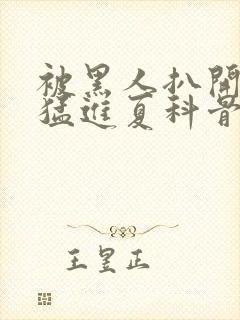 被黑人扒開
猛進夏科普
王昱正